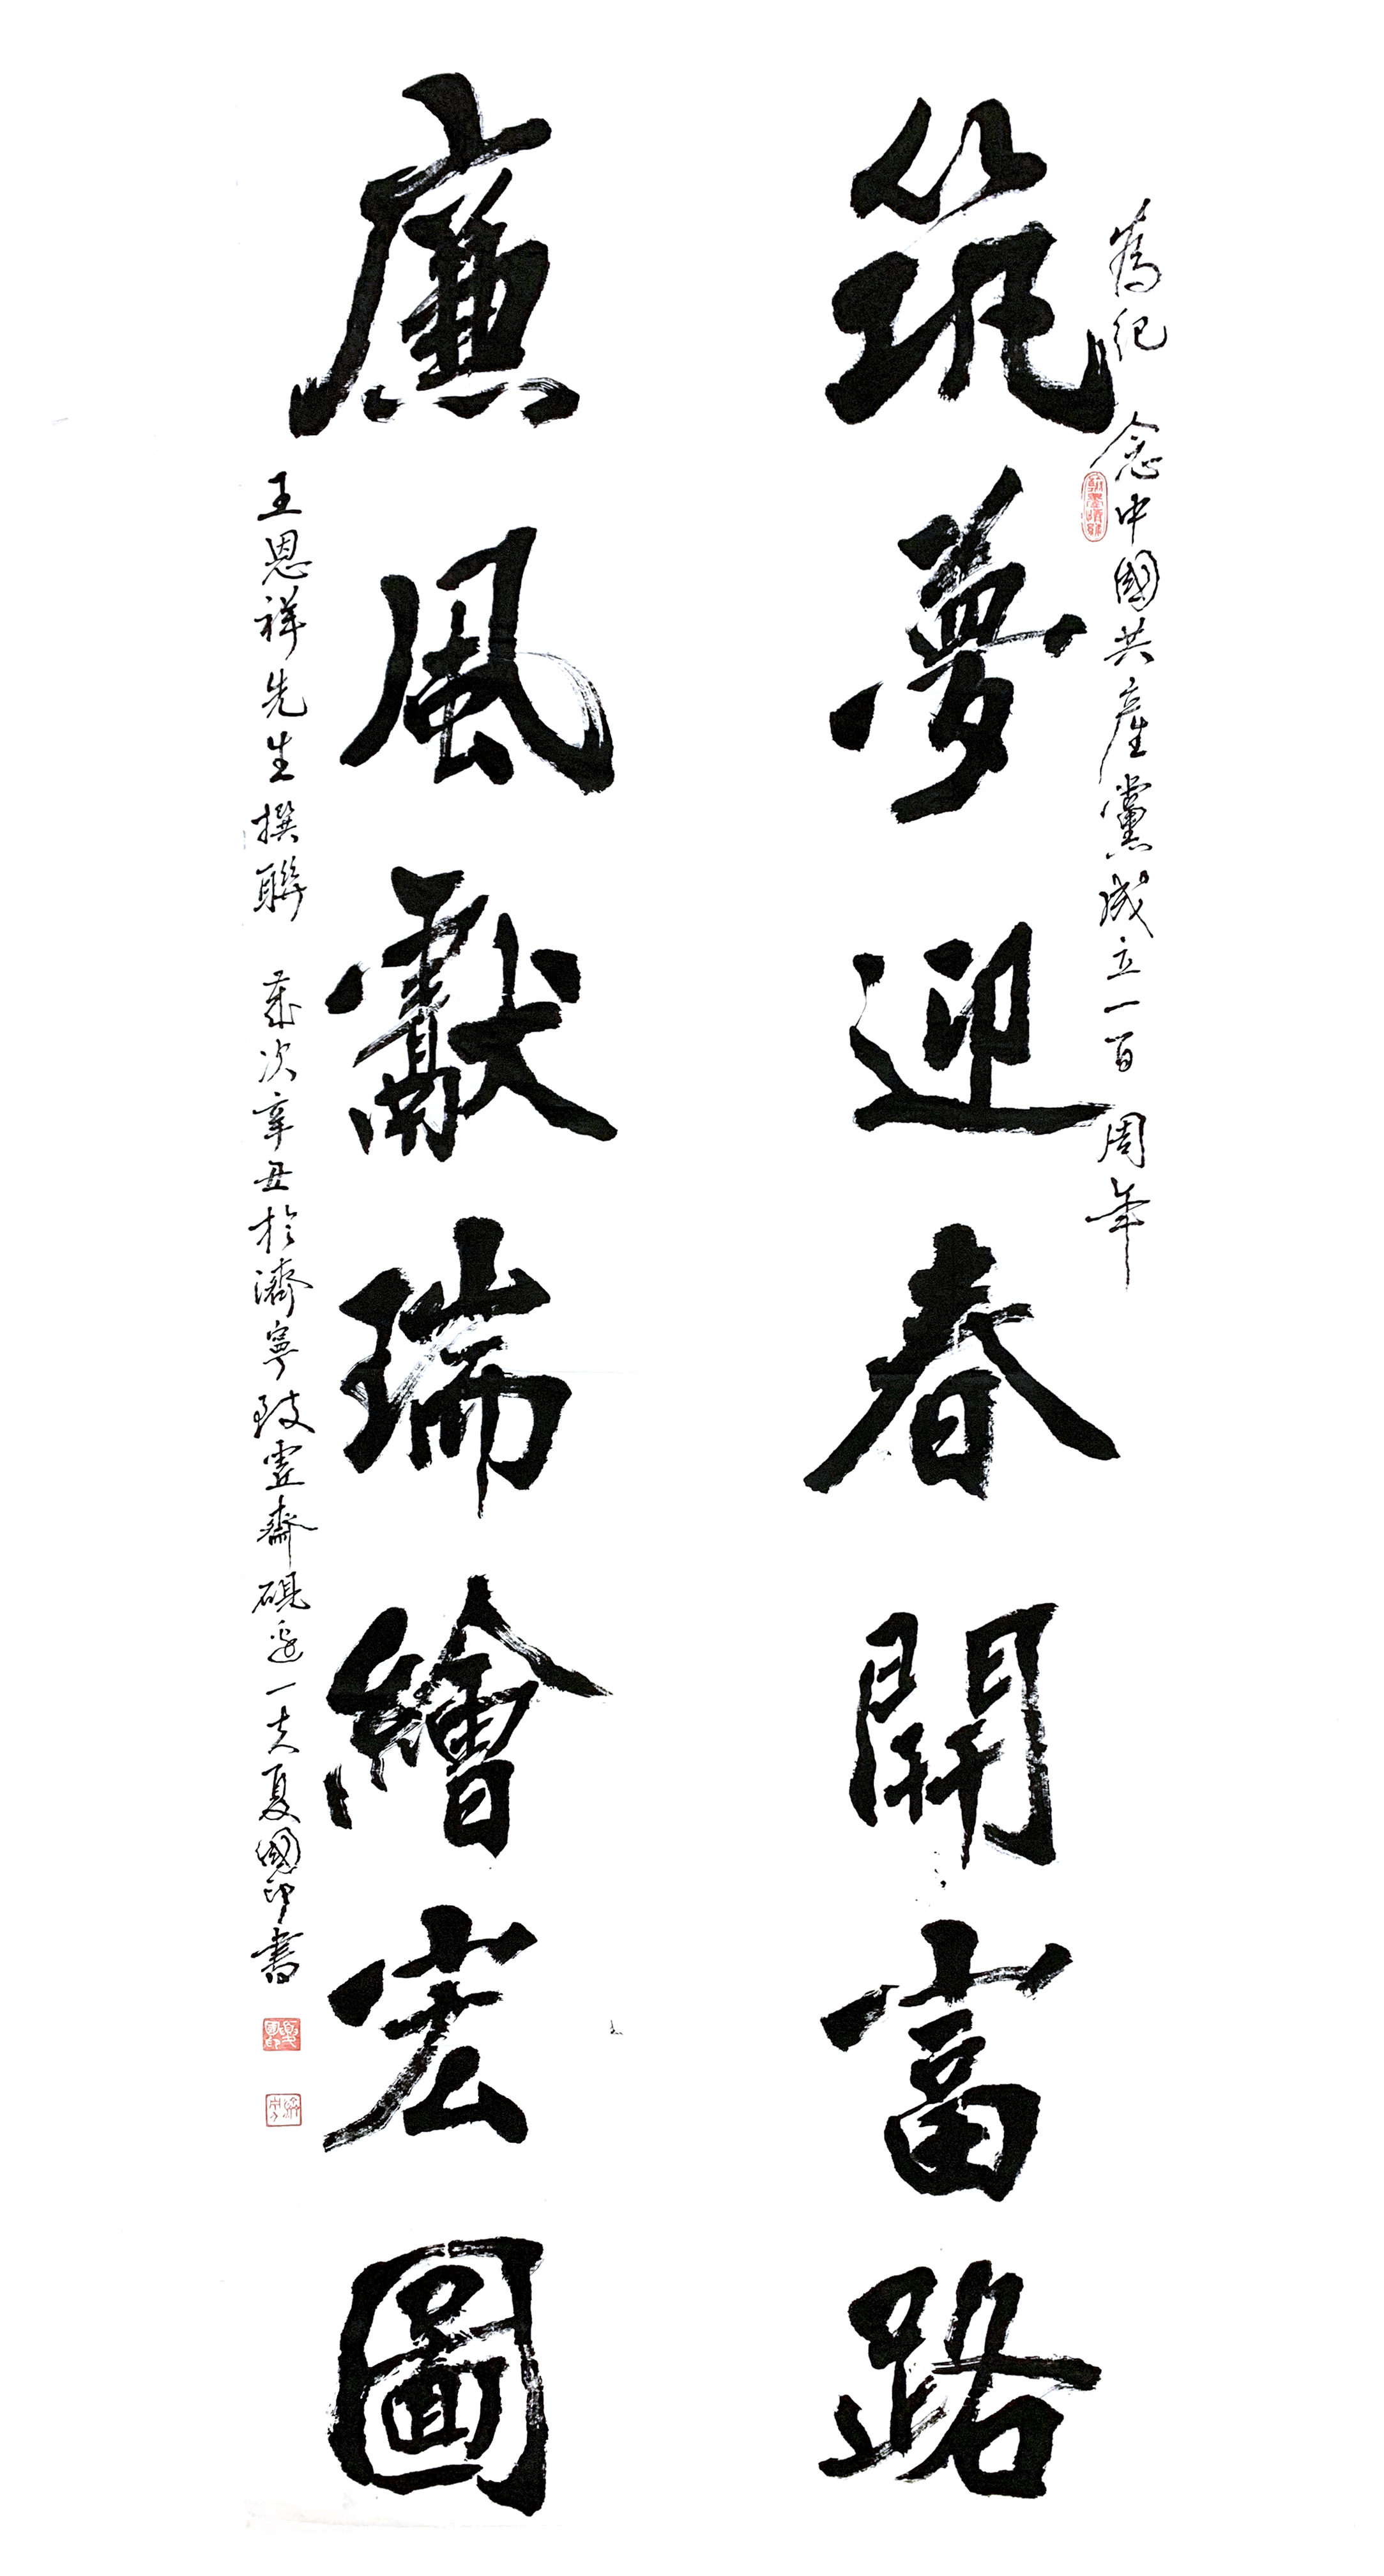 為紀念中國共産黨成立一百周年
筑夢迎春開富路
廉風獻瑞繪宏圖
王恩祥先生撰聯 歲次辛丑於濟寧致虛齋硯邊一夫夏國印書